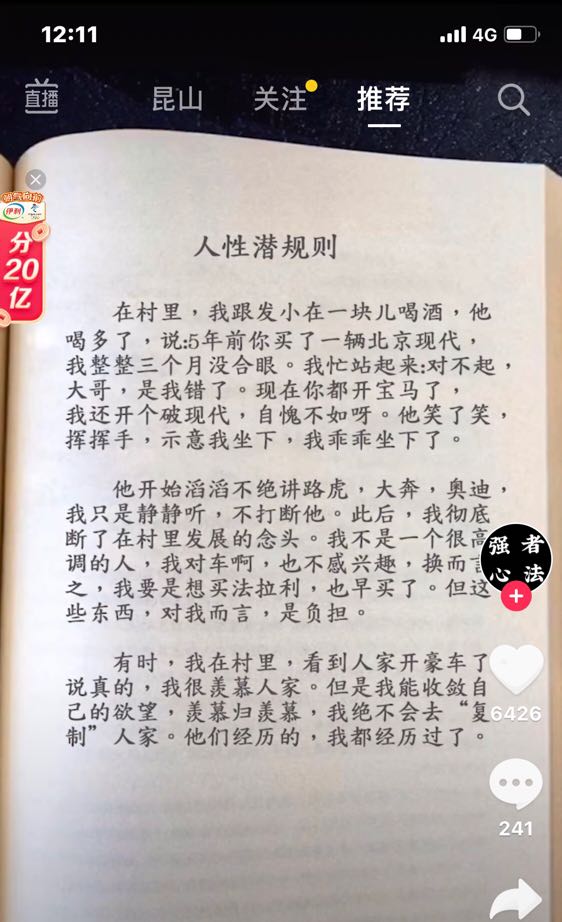 12:11
4G
直播
昆山
关注
推荐
伊利
分
20
亿
人性潜规则
在村里，我跟发小在一块儿喝酒，他
喝多了，说:5年前你买了一辆北京现代，
我整整三个月没合眼。我忙站起来:对不起，
大哥，是我错了。现在你都开宝马了，
我还开个破现代，自愧不如呀。他笑了笑，
挥挥手，示意我坐下，我乖乖坐下了。
他开始滔滔不绝讲路虎，大奔，奥迪，
我只是静静听，不打断他。此后，我彻底
断了在村里发展的念头。我不是一个很高
调的人，我对车啊，也不感兴趣，换而言
之，我要是想买法拉利，也早买了。但这
些东西，对我而言，是负担。
有时，我在村里，看到人家开豪车了
说真的，我很羡慕人家。但是我能收敛自
己的欲望，羡慕归羡慕，我绝不会去“复
制”人家。他们经历的，我都经历过了。
强者
心法
6426
241